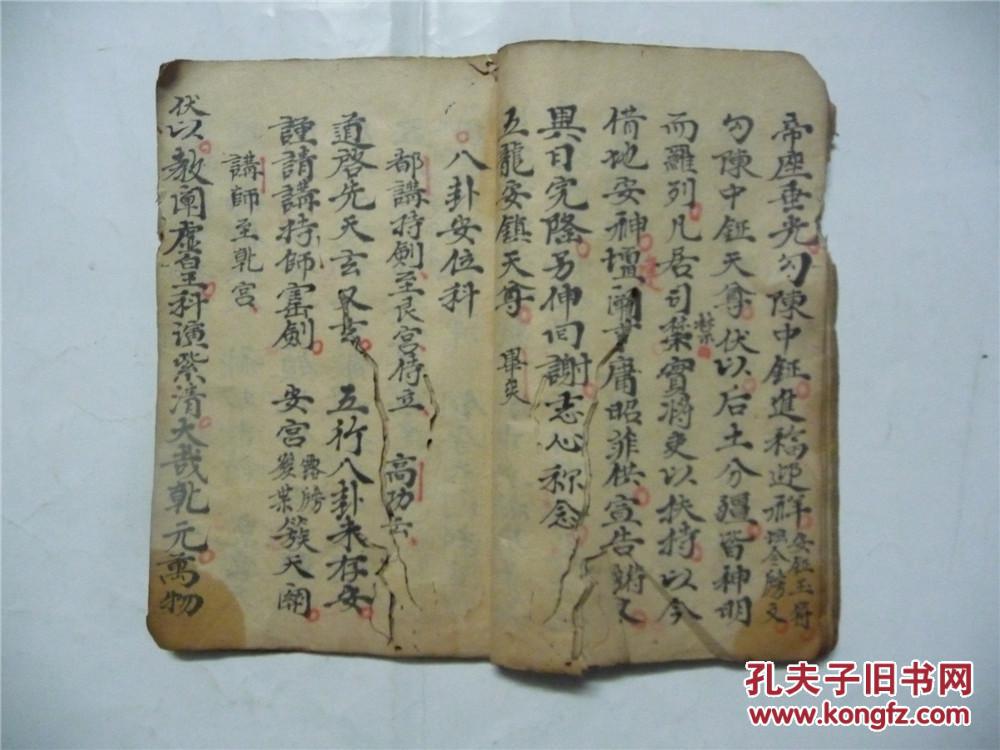 帝座垂光勾陳中鉦進福迎祥安鉦玉符
勾陳中鉦天尊伏以后土分疆皆神明
而羅列凡居司禁實將吏以扶持以今
借地安神壇庸昭菲供宣告
異日完隆另伸回謝志心称念
五龍安鎮天尊 畢矣
八卦安位科
都講持劍至艮宮侍立 高功云
道啓先天玄又玄 五行八卦未存安
謹請講持師
劍 安宮
簇天
講師至乾宮
伏以教闡虛皇科演紫清大哉乾元萬物
孔夫子旧书网
www.kongfz.com